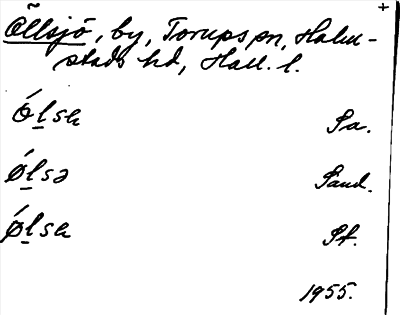 Öllsjö, by, Torups sn, Halm-
stads hd, Hall. l.
+
ólsa Sa.
ø̀lsə Sand.
ǿlsa Sf.
1955.